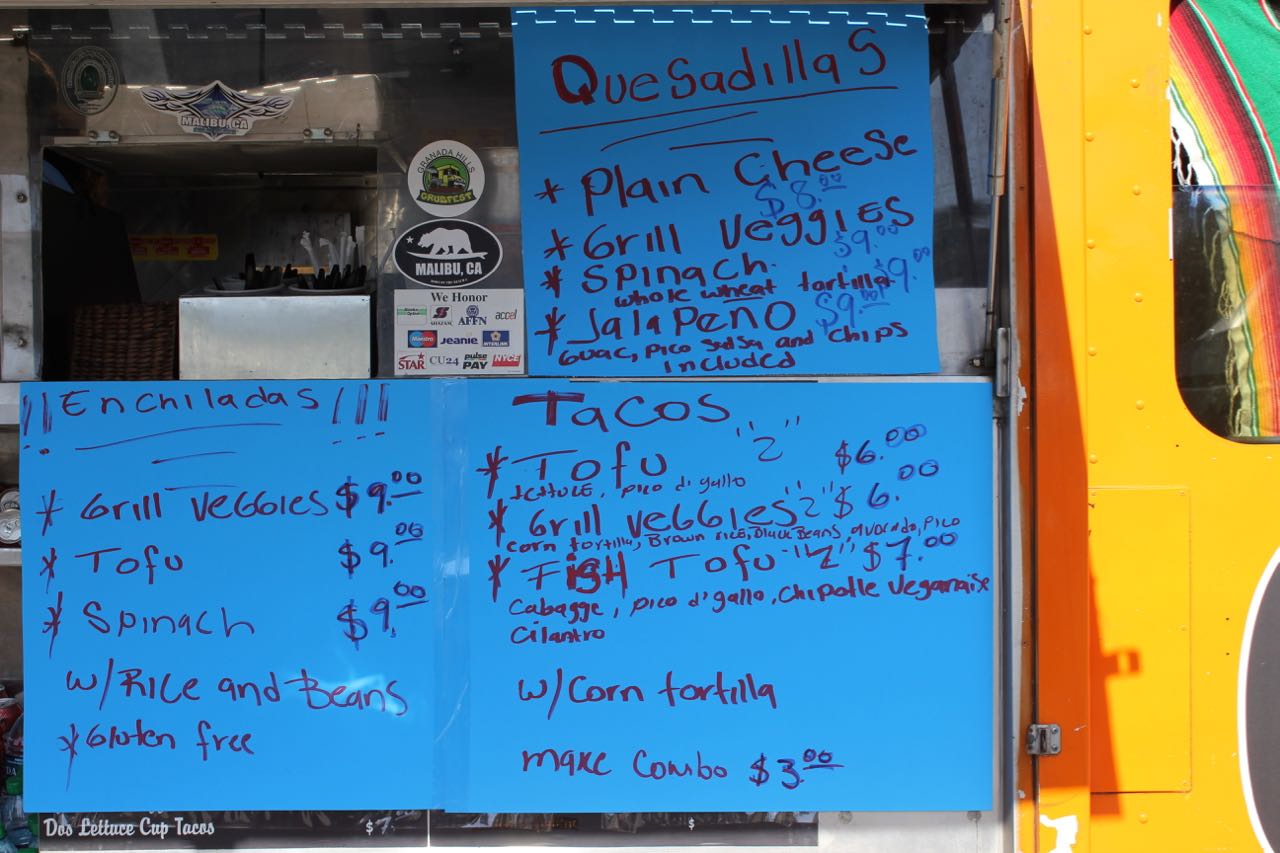 MALIBU, CA
GRANADA HILLS
GRUBFEST
MALIBU, CA
We Honor
AFFN accel
Maestro Jeanie INTERLINK
STAR CU24 pulse PAY NYCE
Quesadillas
* Plain Cheese
$8.00
* Grill Veggies
$9.00
* Spinach. $9.00
whole wheat tortilla
* Jalapeno $9.00
Guac, pico salsa and chips
included
!! Enchiladas !!!
* Grill Veggies $9.00
* Tofu $9.00
* Spinach $9.00
w/Rice and Beans
*Gluten free
Tacos
* Tofu "2" $6.00
lettuce, pico d' gallo
* Grill Veggies "2" $6.00
corn tortilla, Brown rice, Black Beans, avocado, pico
* FISH Tofu "2" $7.00
Cabagge, pico d'gallo, chipotle Veganaise
Cilantro
w/Corn tortilla
make Combo $3.00
Dos Lettuce Cup Tacos $7
$